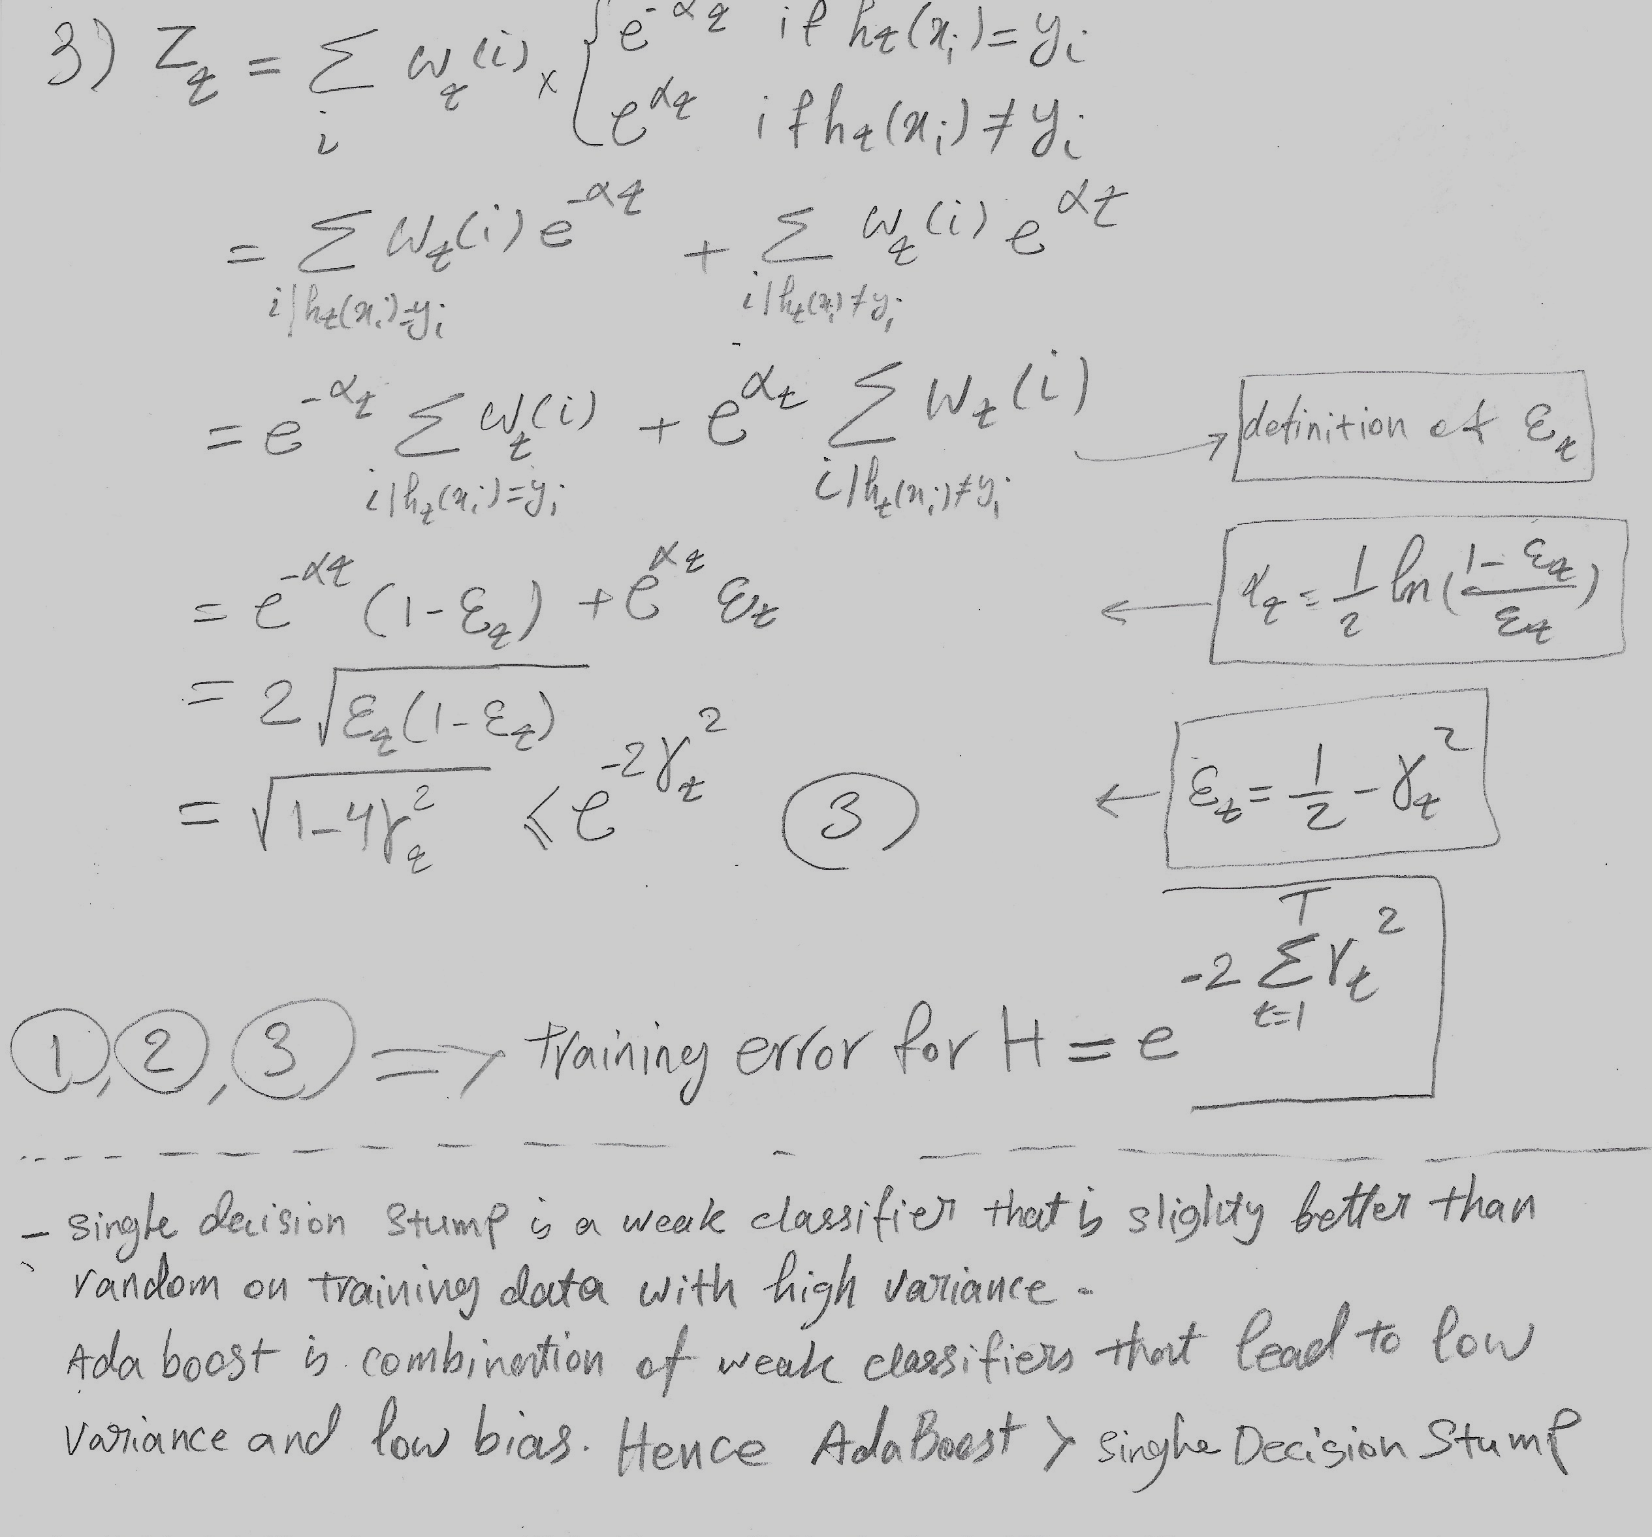 3) Z_t = Σ_i w_t(i) × { e^{-α_t} if h_t(x_i) = y_i
e^{α_t} if h_t(x_i) ≠ y_i
= Σ_{i|h_t(x_i)=y_i} w_t(i) e^{-α_t} + Σ_{i|h_t(x_i)≠y_i} w_t(i) e^{α_t}
= e^{-α_t} Σ_{i|h_t(x_i)=y_i} w_t(i) + e^{α_t} Σ_{i|h_t(x_i)≠y_i} w_t(i) → definition of ε_t
= e^{-α_t} (1-ε_t) + e^{α_t} ε_t ← α_t = 1/2 ln((1-ε_t)/ε_t)
= 2 √(ε_t(1-ε_t))
= √(1-4γ_t^2) ≤ e^{-2γ_t^2} ③ ← ε_t = 1/2 - γ_t^2
①, ②, ③ => training error for H = e^{-2 Σ_{t=1}^{T} γ_t^2}
- single decision stump is a weak classifier that is slighty better than
random on training data with high variance.
Ada boost is combination of weak classifiers that lead to low
variance and low bias. Hence AdaBoost > single Decision Stump